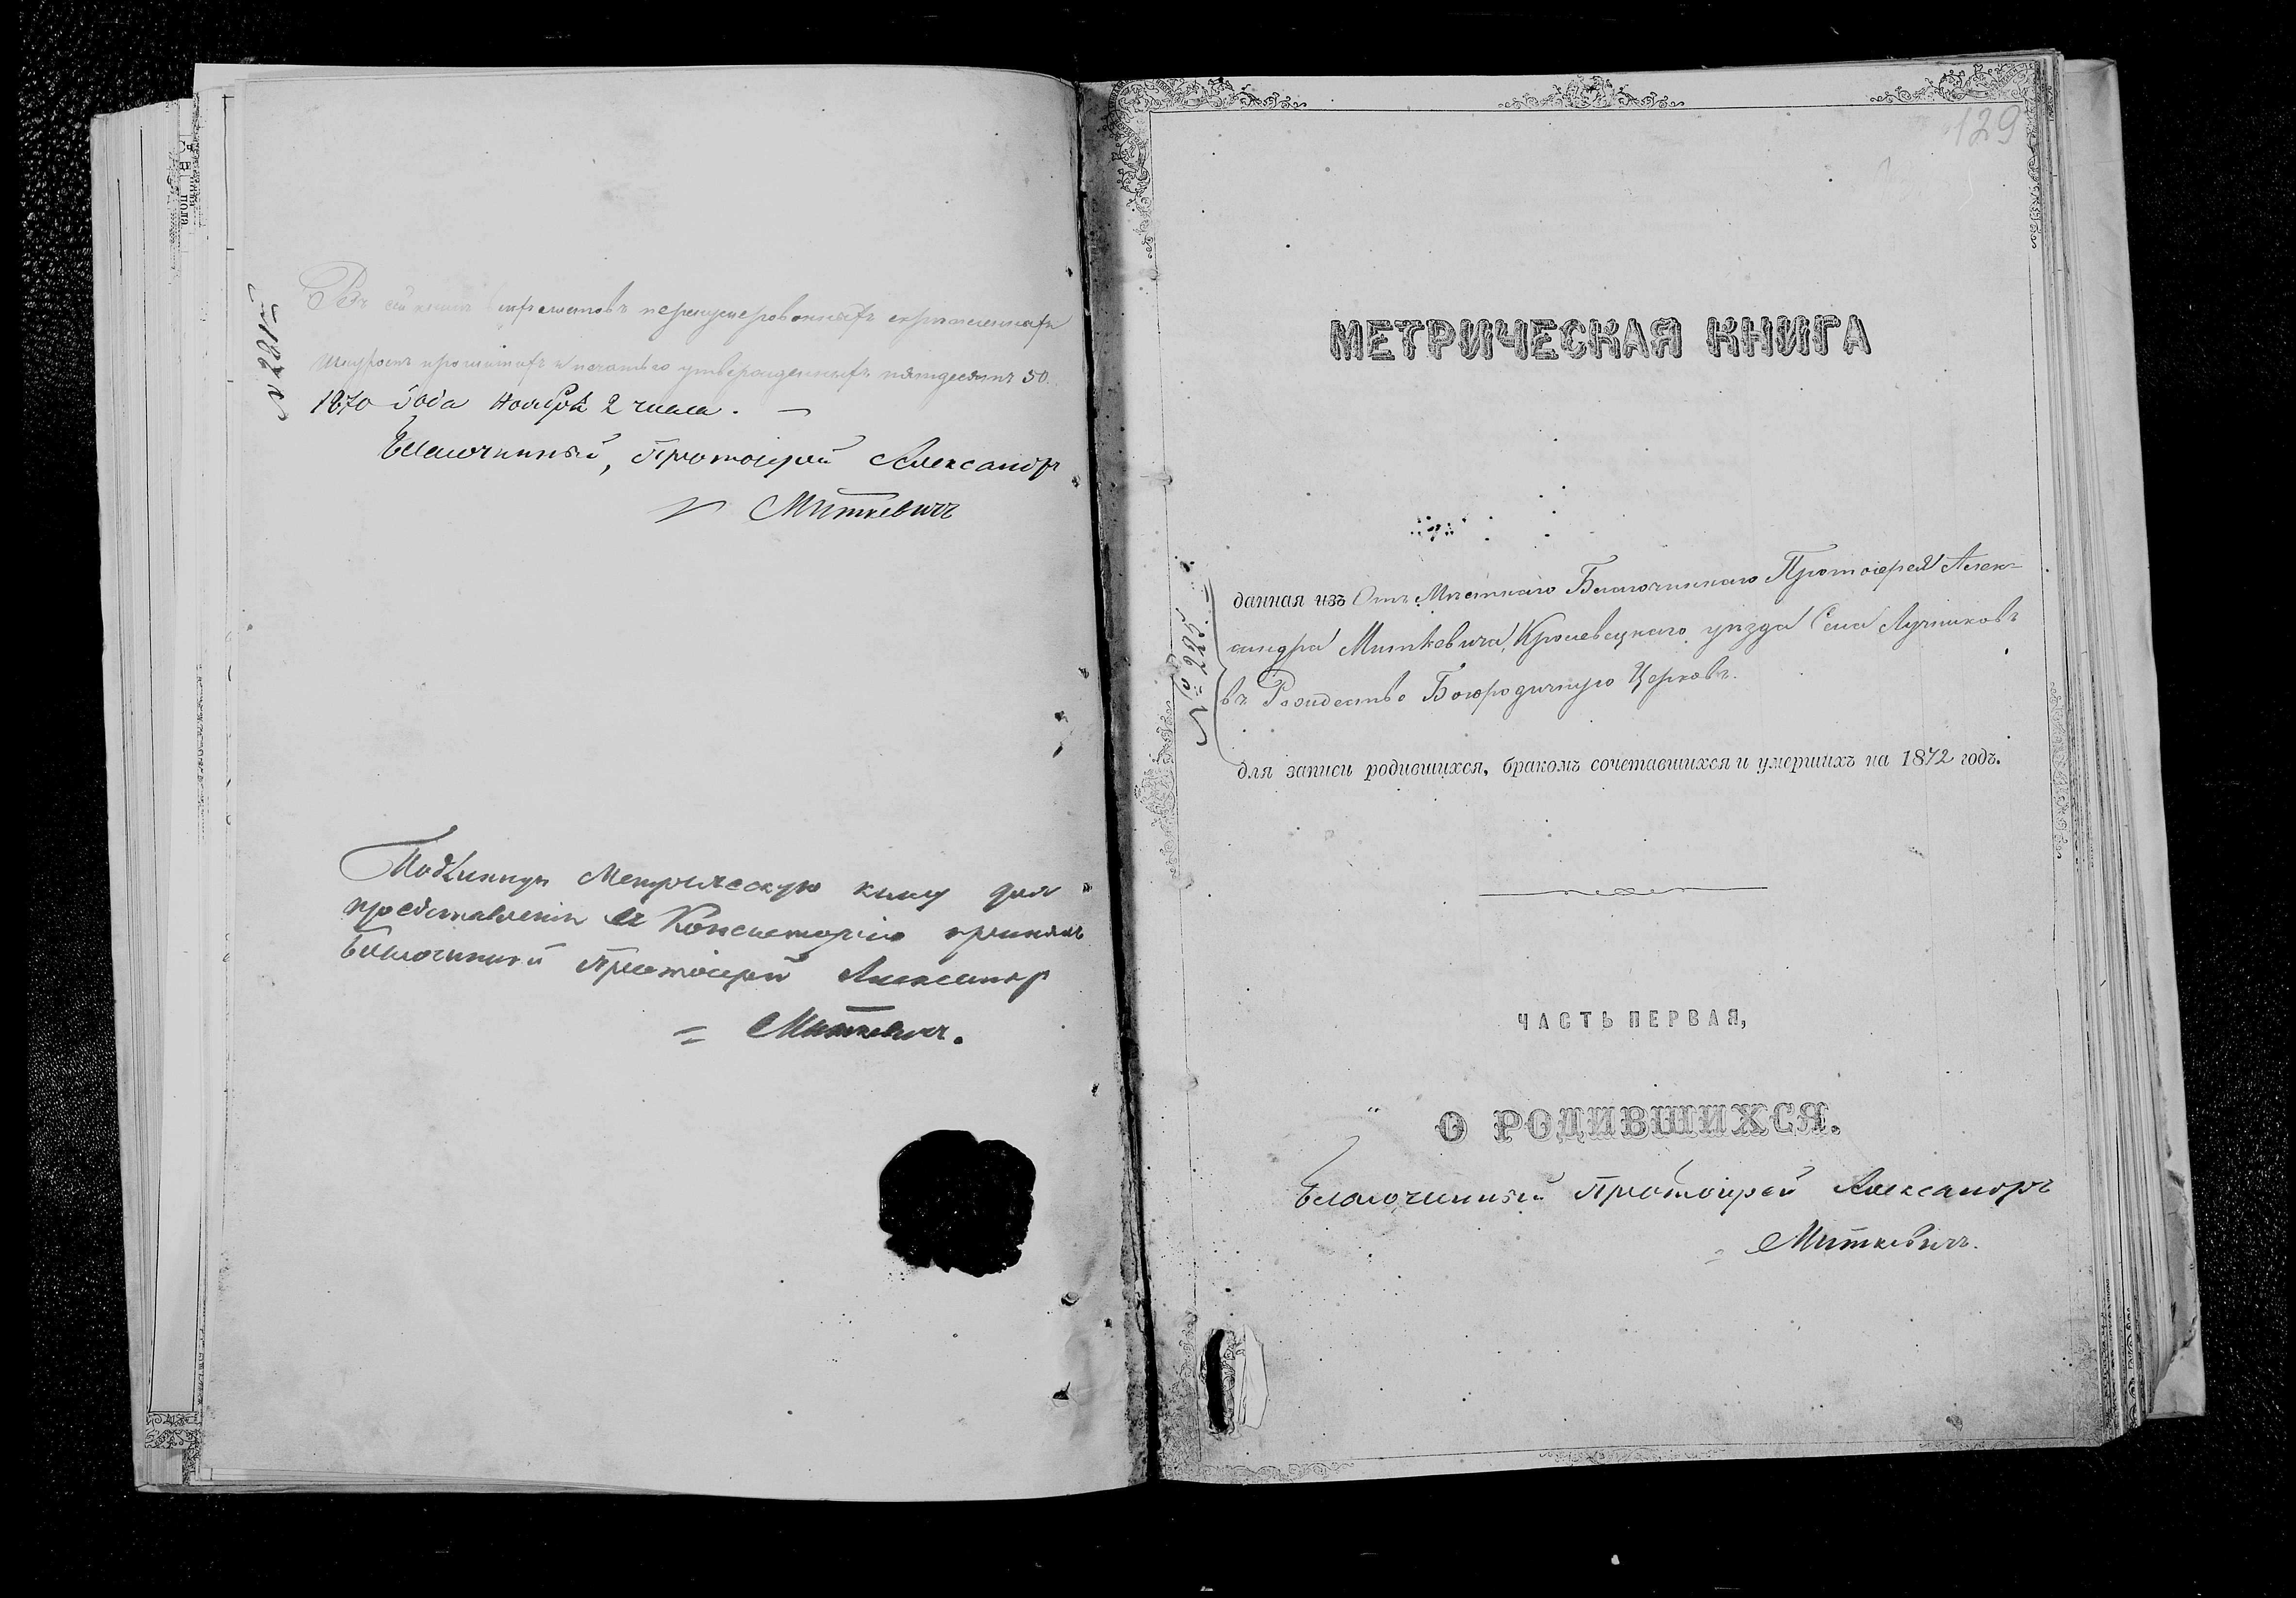 № 221
сей книге листовъ перенумерованныхъ скрепленныхъ
шнуромъ прошитыхъ и печатью утвержденныхъ пятдесятъ 50.
1870 года Ноября 2 числа. —
Благочинный, Протоіерей Александръ
Миткевичъ
Подлинную Метрическую книгу для
представленія въ Консисторію принялъ
Благочинный Протоіерей Александръ
= Миткевичъ.
129
МЕТРИЧЕСКАЯ КНИГА
№ 225
данная изъ Отъ Мѣстнаго Благочиннаго Протоіерея Алек-
сандра Миткевича, Кролевецкаго уѣзда Села Лучниковъ
въ Рождество Богородичную Церковь.
для записи родившихся, бракомъ сочетавшихся и умершихъ на 1872 годъ.
ЧАСТЬ ПЕРВАЯ,
О РОДИВШИХСЯ.
Благочинный Протоіерей Александръ
= Миткевичъ.